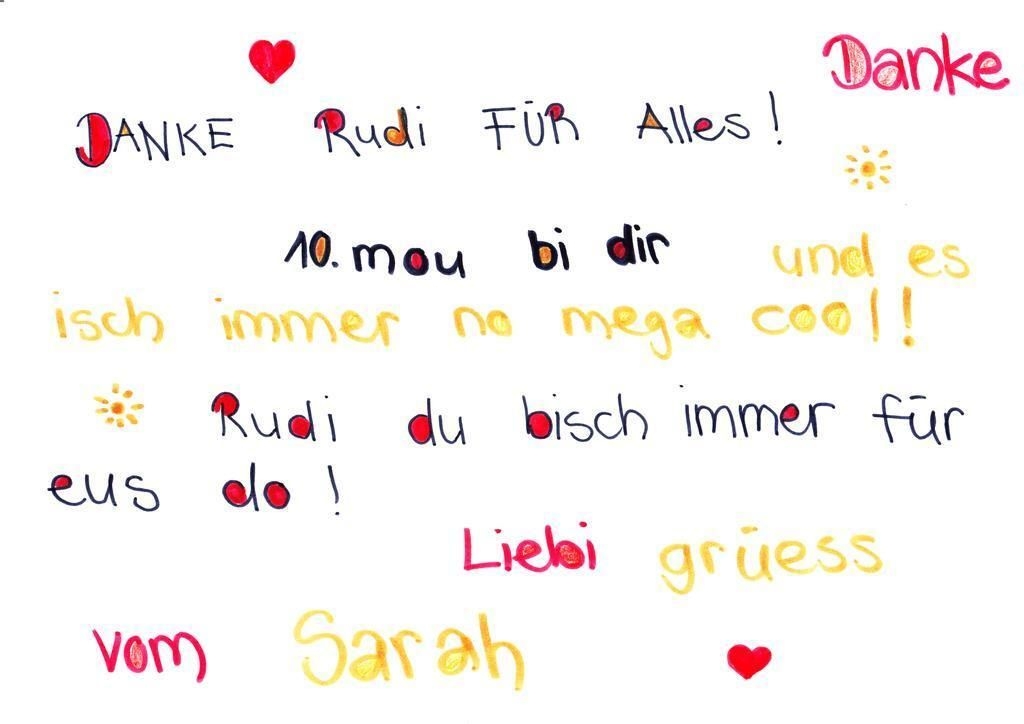 Danke
DANKE Rudi FÜR Alles!
10. mou bi dir und es
isch immer no mega cool!
Rudi du bisch immer für
eus do!
Liebi grüess
vom Sarah